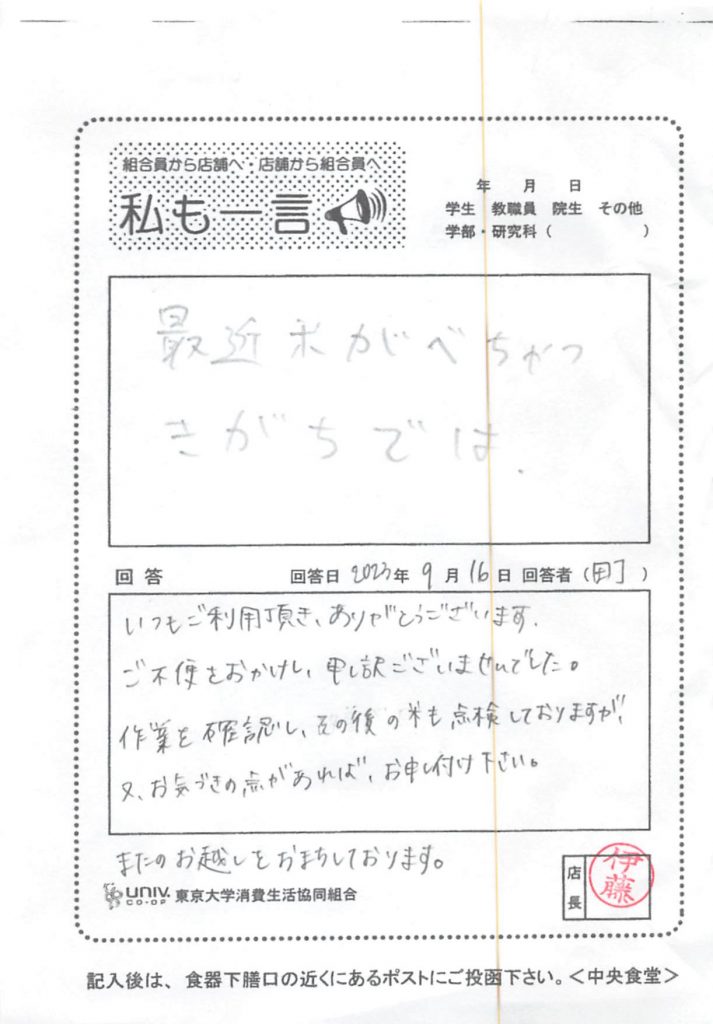 組合員から店舗へ・店舗から組合員へ
私も一言
年 月 日
学生 教職員 院生 その他
学部・研究科（ ）
最近米がべちゃつ
きがちでは.
回答 回答日 2023年 9月 16日 回答者（田丁）
いつもご利用頂き、ありがとうございます.
ご不便をおかけし、申し訳ございませんでした。
作業を確認し、その後の米も点検しておりますが、
又、お気づきの点があれば、お申し付け下さい。
またのお越しをおまちしております。
UNIV. CO-OP 東京大学消費生活協同組合
店長 伊藤
記入後は、食器下膳口の近くにあるポストにご投函下さい。＜中央食堂＞